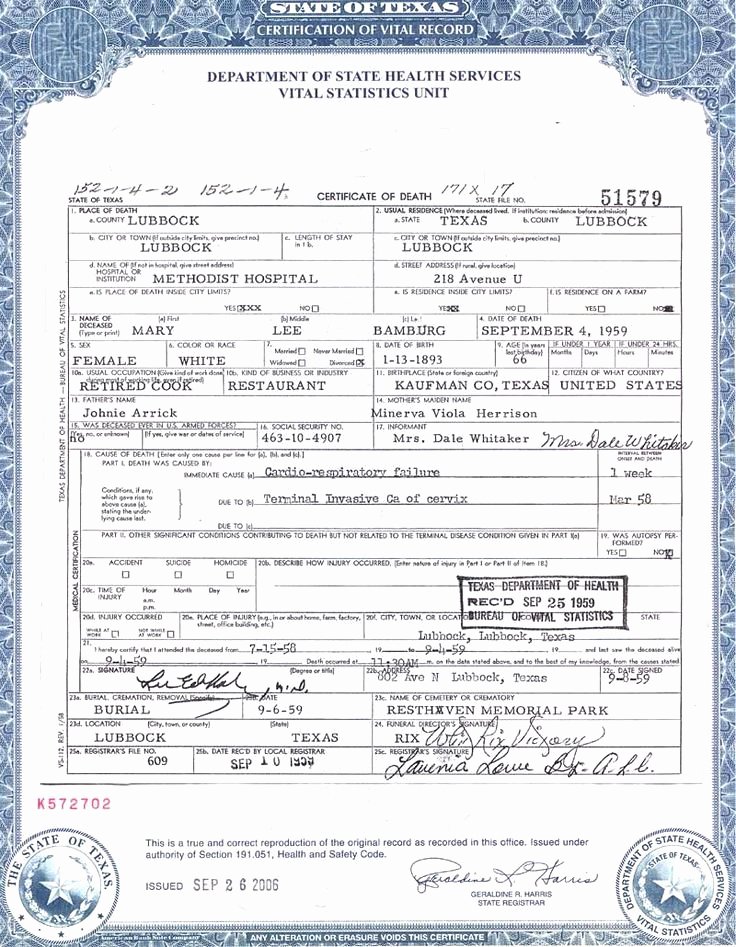 STATE OF TEXAS
CERTIFICATION OF VITAL RECORD
DEPARTMENT OF STATE HEALTH SERVICES
VITAL STATISTICS UNIT
152-1-4-2 152-1-4 171X 17
STATE OF TEXAS CERTIFICATE OF DEATH STATE FILE NO. 51579
1. PLACE OF DEATH 2. USUAL RESIDENCE (Where deceased lived. If institution: residence before admission)
a. COUNTY LUBBOCK a. STATE TEXAS b. COUNTY LUBBOCK
b. CITY OR TOWN (If outside city limits, give precinct no.) c. LENGTH OF STAY in 1b. c. CITY OR TOWN (If outside city limits, give precinct no.)
LUBBOCK LUBBOCK
d. NAME OF (If not in hospital, give street address) d. STREET ADDRESS (If rural, give location)
HOSPITAL OR INSTITUTION METHODIST HOSPITAL 218 Avenue U
e. IS PLACE OF DEATH INSIDE CITY LIMITS? e. IS RESIDENCE INSIDE CITY LIMITS? f. IS RESIDENCE ON A FARM?
YES XXX NO YES XX NO YES NO
3. NAME OF DECEASED (Type or print) (a) First (b) Middle (c) Last 4. DATE OF DEATH
MARY LEE BAMBURG SEPTEMBER 4, 1959
5. SEX 6. COLOR OR RACE 7. Married Never Married 8. DATE OF BIRTH 9. AGE (In years last birthday) IF UNDER 1 YEAR IF UNDER 24 HRS.
Months Days Hours Minutes
FEMALE WHITE Widowed Divorced X 1-13-1893 66
10a. USUAL OCCUPATION (Give kind of work done during most of working life, even if retired) 10b. KIND OF BUSINESS OR INDUSTRY 11. BIRTHPLACE (State or foreign country) 12. CITIZEN OF WHAT COUNTRY?
RETIRED COOK RESTAURANT KAUFMAN CO, TEXAS UNITED STATES
13. FATHER'S NAME 14. MOTHER'S MAIDEN NAME
Johnie Arrick Minerva Viola Herrison
15. WAS DECEASED EVER IN U.S. ARMED FORCES? 16. SOCIAL SECURITY NO. 17. INFORMANT
(Yes, no, or unknown) (If yes, give war or dates of service)
no 463-10-4907 Mrs. Dale Whitaker Mrs. Dale Whitaker
18. CAUSE OF DEATH [Enter only one cause per line for (a), (b), and (c).] INTERVAL BETWEEN ONSET AND DEATH
PART I. DEATH WAS CAUSED BY:
IMMEDIATE CAUSE (a) Cardio-respiratory failure 1 week
Conditions, if any, which gave rise to above cause (a), stating the underlying cause last.
DUE TO (b) Terminal Invasive Ca of cervix Mar 58
DUE TO (c)
PART II. OTHER SIGNIFICANT CONDITIONS CONTRIBUTING TO DEATH BUT NOT RELATED TO THE TERMINAL DISEASE CONDITION GIVEN IN PART I(a) 19. WAS AUTOPSY PERFORMED?
YES NO
20a. ACCIDENT SUICIDE HOMICIDE 20b. DESCRIBE HOW INJURY OCCURRED. (Enter nature of injury in Part I or Part II of Item 18.)
20c. TIME OF INJURY Hour Month Day Year
a.m.
p.m.
TEXAS DEPARTMENT OF HEALTH
REC'D SEP 25 1959
BUREAU OF VITAL STATISTICS
20d. INJURY OCCURRED 20e. PLACE OF INJURY (e.g., in or about home, farm, factory, street, office building, etc.) 20f. CITY, TOWN, OR LOCATION COUNTY STATE
WHILE AT WORK NOT WHILE AT WORK Lubbock, Lubbock, Texas
21. I hereby certify that I attended the deceased from 7-15-58 19 to 9-4-59 19 and last saw the deceased alive
on 9-4-59 19 Death occurred at 11:30AM m. on the date stated above, and to the best of my knowledge, from the causes stated
22a. SIGNATURE (Degree or title) 22b. ADDRESS 22c. DATE SIGNED
M.D. 802 Ave N Lubbock, Texas 9-8-59
23a. BURIAL, CREMATION, REMOVAL (Specify) 23b. DATE 23c. NAME OF CEMETERY OR CREMATORY
BURIAL 9-6-59 RESTHAVEN MEMORIAL PARK
23d. LOCATION (City, town, or county) (State) 24. FUNERAL DIRECTOR'S SIGNATURE
LUBBOCK TEXAS RIX
25a. REGISTRAR'S FILE NO. 25b. DATE REC'D BY LOCAL REGISTRAR 25c. REGISTRAR'S SIGNATURE
609 SEP 10 1959 Lavenia Lowe
TEXAS DEPARTMENT OF HEALTH — BUREAU OF VITAL STATISTICS
MEDICAL CERTIFICATION
VS-112, REV. 1/58
K572702
This is a true and correct reproduction of the original record as recorded in this office. Issued under
authority of Section 191.051, Health and Safety Code.
ISSUED SEP 26 2006
Geraldine R. Harris
GERALDINE R. HARRIS
STATE REGISTRAR
THE STATE OF TEXAS
DEPARTMENT OF STATE HEALTH SERVICES
STATE OF TEXAS
VITAL STATISTICS
American Bank Note Company
ANY ALTERATION OR ERASURE VOIDS THIS CERTIFICATE